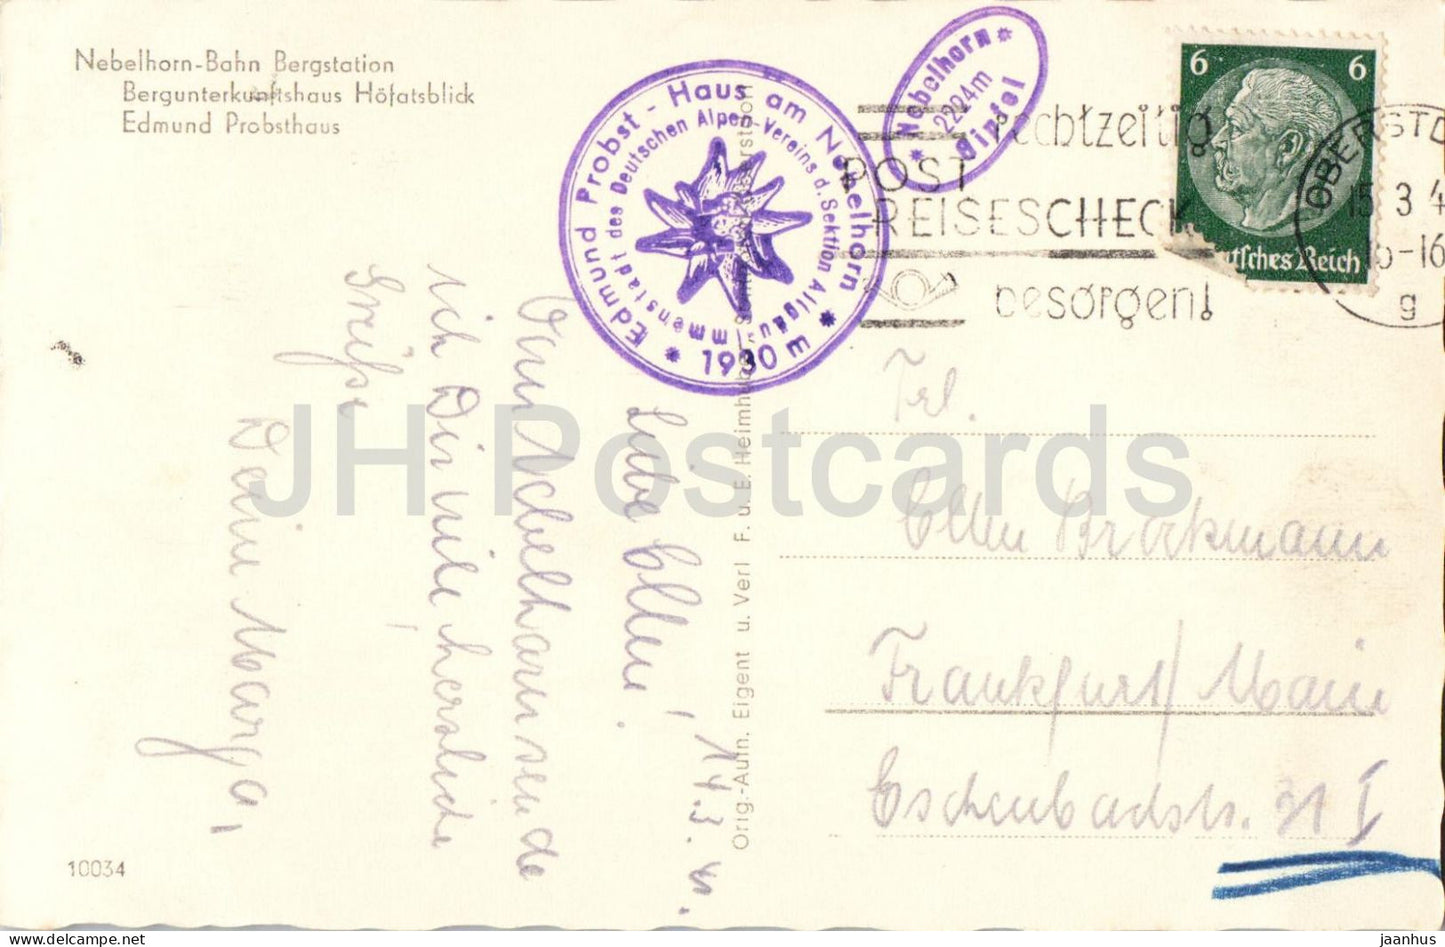 Nebelhorn-Bahn Bergstation
Bergunterkunftshaus Höfatsblick
Edmund Probsthaus
Edmund Probst-Haus am Nebelhorn
des Deutschen Alpen-Vereins d. Sektion Allgäu-Immenstadt
* 1930 m *
* Nebelhorn *
2224m
Gipfel
rechtzeitig
POST
REISESCHECK
besorgen!
6 6
Deutsches Reich
OBERSTD
15 3 4
16-16
g
14.3.
Liebe Ellen!
Vom Nebelhorn sende
ich Dir viele herzliche
Grüße!
Deine Marga,
Frl.
Ellen Brockmann
Frankfurt/Main
Eschenbachstr. 31 I
Orig.-Aufn. Eigent u. Verl F. u. E. Heimhuber, Sonthofen-Oberstdorf
10034
JH Postcards
jaanhus.com
jaanhus